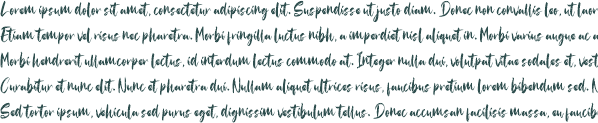 Lorem ipsum dolor sit amet, consectetur adipiscing elit. Suspendisse ut justo diam. Donec non convallis leo, ut laor
Etiam tempor vel risus nec pharetra. Morbi fringilla luctus nibh, a imperdiet nisl aliquet in. Morbi varius augue ac a
Morbi hendrerit ullamcorper lectus, id interdum lectus commodo at. Integer nulla dui, volutpat vitae sodales et, vest
Curabitur et nunc elit. Nunc et pharetra dui. Nullam aliquet ultrices risus, faucibus pretium lorem bibendum sed. N
Sed tortor ipsum, vehicula sed purus eget, dignissim vestibulum tellus. Donec accumsan facilisis massa, eu faucib